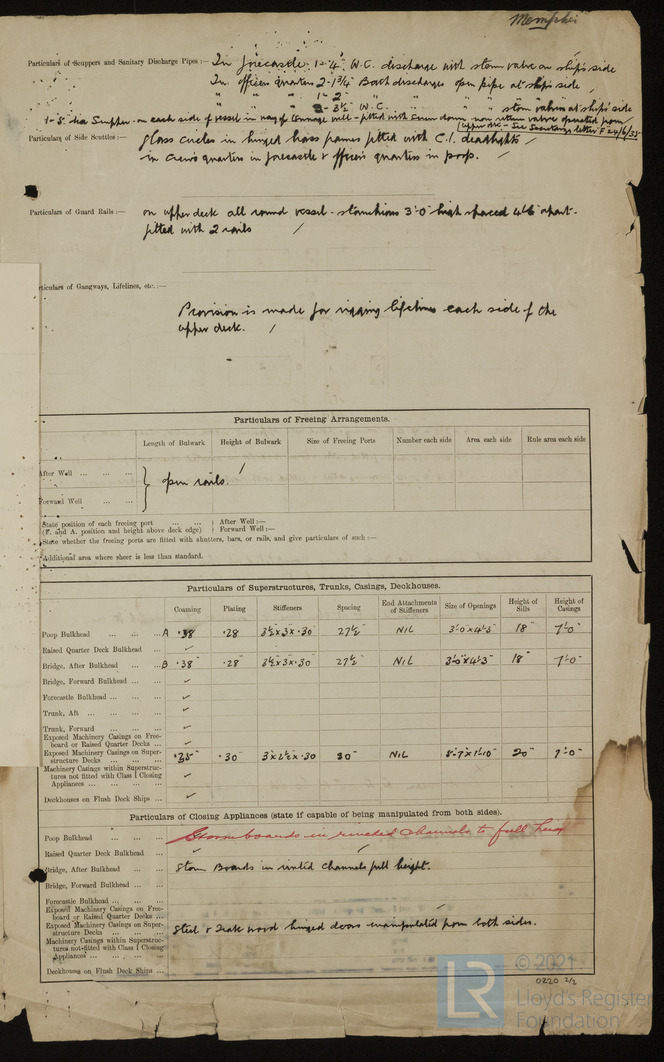 Memphis
Particulars of Scuppers and Sanitary Discharge Pipes :— In forecastle. 1-4" W.C. discharge with storm valve on ship's side
In officers quarters 2-1¾" Bath discharges open pipe at ship's side
" " " 1-2" " " " "
" " " 3-3½" W.C. " " " storm valves at ship's side
1-5" dia Scupper on each side of vessel in way of tonnage well - fitted with screw down non return valve operated from
upper deck - See Secretary's letter F 24/6/35
Particulars of Side Scuttles :— glass circles in hinged brass frames fitted with C.I. deadlights
in crew's quarters in forecastle & officers quarters in poop.
Particulars of Guard Rails :— on upper deck all round vessel - stanchions 3'-0" high spaced 4'-6" apart.
fitted with 2 rails
rticulars of Gangways, Lifelines, etc. :—
Provision is made for rigging lifelines each side of the
upper deck.
Particulars of Freeing Arrangements.
Length of Bulwark Height of Bulwark Size of Freeing Ports Number each side Area each side Rule area each side
After Well ... ... ...
open rails.
Forward Well ... ...
State position of each freeing port ... ... } After Well :—
(F. and A. position and height above deck edge) } Forward Well :—
State whether the freeing ports are fitted with shutters, bars, or rails, and give particulars of such :—
Additional area where sheer is less than standard.
Particulars of Superstructures, Trunks, Casings, Deckhouses.
Coaming Plating Stiffeners Spacing End Attachments of Stiffeners Size of Openings Height of Sills Height of Casings
Poop Bulkhead ... ... ... A .38" .28 3½"x3"x.30 27½" NIL 3'-0"x4'-3" 18" 7'-0"
Raised Quarter Deck Bulkhead ... ✓
Bridge, After Bulkhead ... ... B .38" .28" 3½"x3"x.30 27½" NIL 3'-0"x4'-3" 18" 7'-0"
Bridge, Forward Bulkhead ... ... ✓
Forecastle Bulkhead ... ... ... ✓
Trunk, Aft ... ... ... ... ✓
Trunk, Forward ... ... ... ✓
Exposed Machinery Casings on Free-
board or Raised Quarter Decks ... ✓
Exposed Machinery Casings on Super-
structure Decks ... ... ... .38" .30" 3"x2½"x.30 30" NIL 5'-7"x1'-10" 20" 7'-0"
Machinery Casings within Superstruc-
tures not fitted with Class 1 Closing
Appliances ... ... ... ... ✓
Deckhouses on Flush Deck Ships ... ✓
Particulars of Closing Appliances (state if capable of being manipulated from both sides).
Poop Bulkhead ... ... ... Storm boards in riveted channels to full height
Raised Quarter Deck Bulkhead ... ✓
Bridge, After Bulkhead ... ... Storm Boards in riveted channels full height.
Bridge, Forward Bulkhead ... ...
Forecastle Bulkhead ... ... ...
Exposed Machinery Casings on Free-
board or Raised Quarter Decks ...
Exposed Machinery Casings on Super-
structure Decks ... ... ... Steel & Teak wood hinged doors manipulated from both sides.
Machinery Casings within Superstruc-
tures not fitted with Class 1 Closing
Appliances ... ... ... ...
Deckhouses on Flush Deck Ships ...
LR © 2021
0220 2/2
Lloyd's Register
Foundation